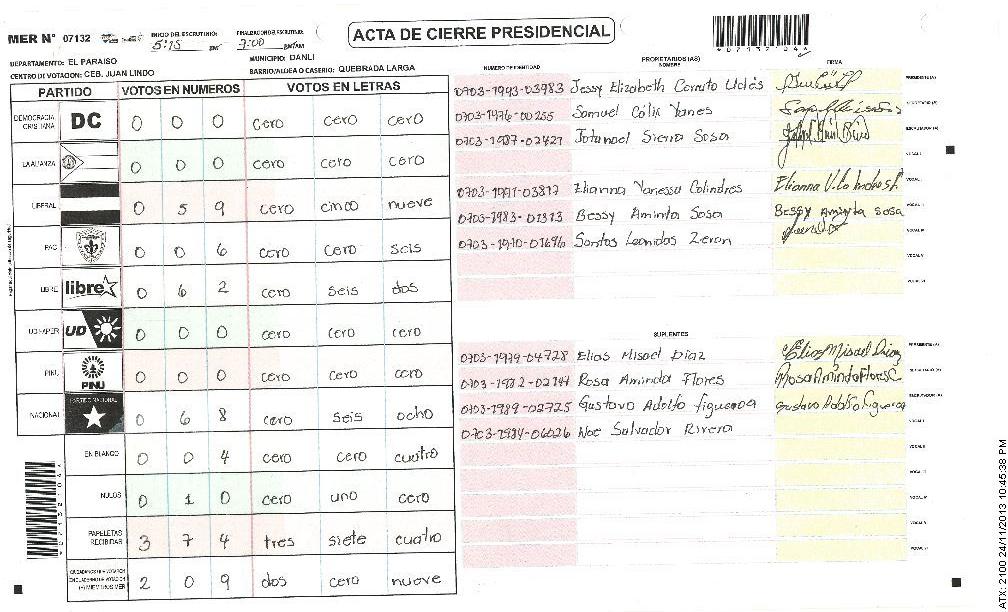 MER N° 07132
INICIO DEL ESCRUTINIO: 5:15 PM
FINALIZACION DEL ESCRUTINIO: 7:00
ACTA DE CIERRE PRESIDENCIAL
DEPARTAMENTO: EL PARAISO
MUNICIPIO: DANLI
CENTRO DE VOTACION: CEB. JUAN LINDO
BARRIO/ALDEA O CASERIO: QUEBRADA LARGA
PARTIDO VOTOS EN NUMEROS VOTOS EN LETRAS
DEMOCRACIA CRISTIANA DC 0 0 0 cero cero cero
LA ALIANZA 0 0 0 cero cero cero
LIBERAL 0 5 9 cero cinco nueve
PAC 0 0 6 cero cero seis
LIBRE libre 0 6 2 cero seis dos
UD FAPER UD 0 0 0 cero cero cero
PINU PINU 0 0 0 cero cero cero
NACIONAL PARTIDO NACIONAL 0 6 8 cero seis ocho
EN BLANCO 0 0 4 cero cero cuatro
NULOS 0 1 0 cero uno cero
PAPELETAS RECIBIDAS 3 7 4 tres siete cuatro
2 0 9 dos cero nueve
PROPIETARIOS (AS)
NUMERO DE IDENTIDAD NOMBRE FIRMA
0703-1993-03983 Jessy Elizabeth Cerrato PRESIDENTE (A)
0703-1976-00255 Samuel Colix Yanes SECRETARIO (A)
0703-1987-02421 Sierra Sosa ESCRUTADOR (A)
VOCAL I
0703-1991-03817 Elianna Vanessa Colindres Elianna V.
0703-1983-01313 Bessy Aminta Sosa Bessy Aminta Sosa
0703-1970-01696 Santos Leonidas Zeron
SUPLENTES
0703-1979-04728 Elias Misael Diaz Elias Misael Diaz PRESIDENTE (A)
0703-1982-02141 Rosa Aminda Flores Rosa Aminda Flores C SECRETARIO (A)
0703-1989-02725 Gustavo Adolfo Figueroa Gustavo Adolfo Figueroa ESCRUTADOR (A)
0703-1984-06026 Noe Salvador Rivera VOCAL I
ATX: 2100 24/11/2013 10:45:38 PM